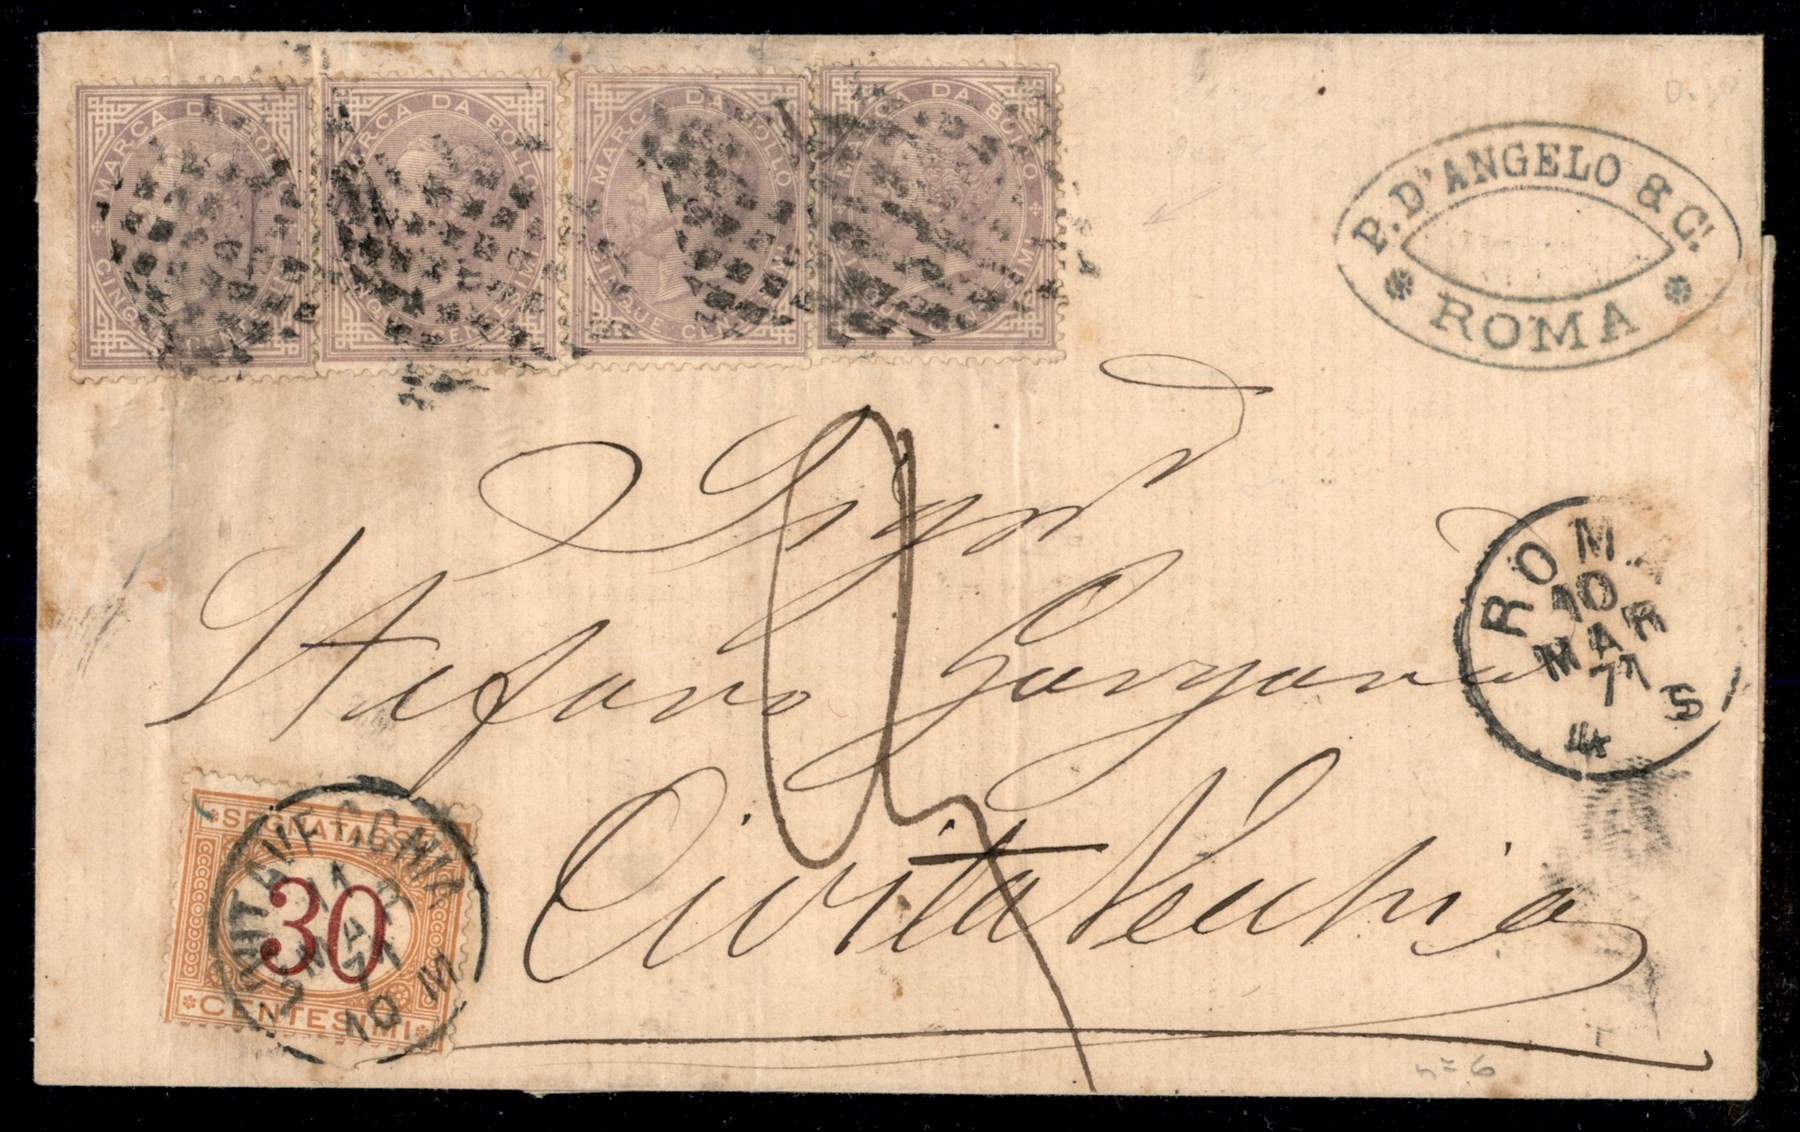 MARCA DA BOLLO
CINQUE CENTESIMI
MARCA DA BOLLO
CINQUE CENTESIMI
MARCA DA BOLLO
CINQUE CENTESIMI
MARCA DA BOLLO
CINQUE CENTESIMI
P. D'ANGELO & C.
ROMA
Sigr
Stefano
Civita Vecchia
ROMA
10
MAR
71
4 S
SEGNATASSE
30
CENTESIMI
CIVITAVECCHIA
11
MAR
71
10 M
n= 6